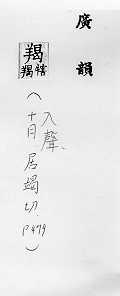 廣韻
羯
羯羠
（入聲、
十月 居竭切.
P479）